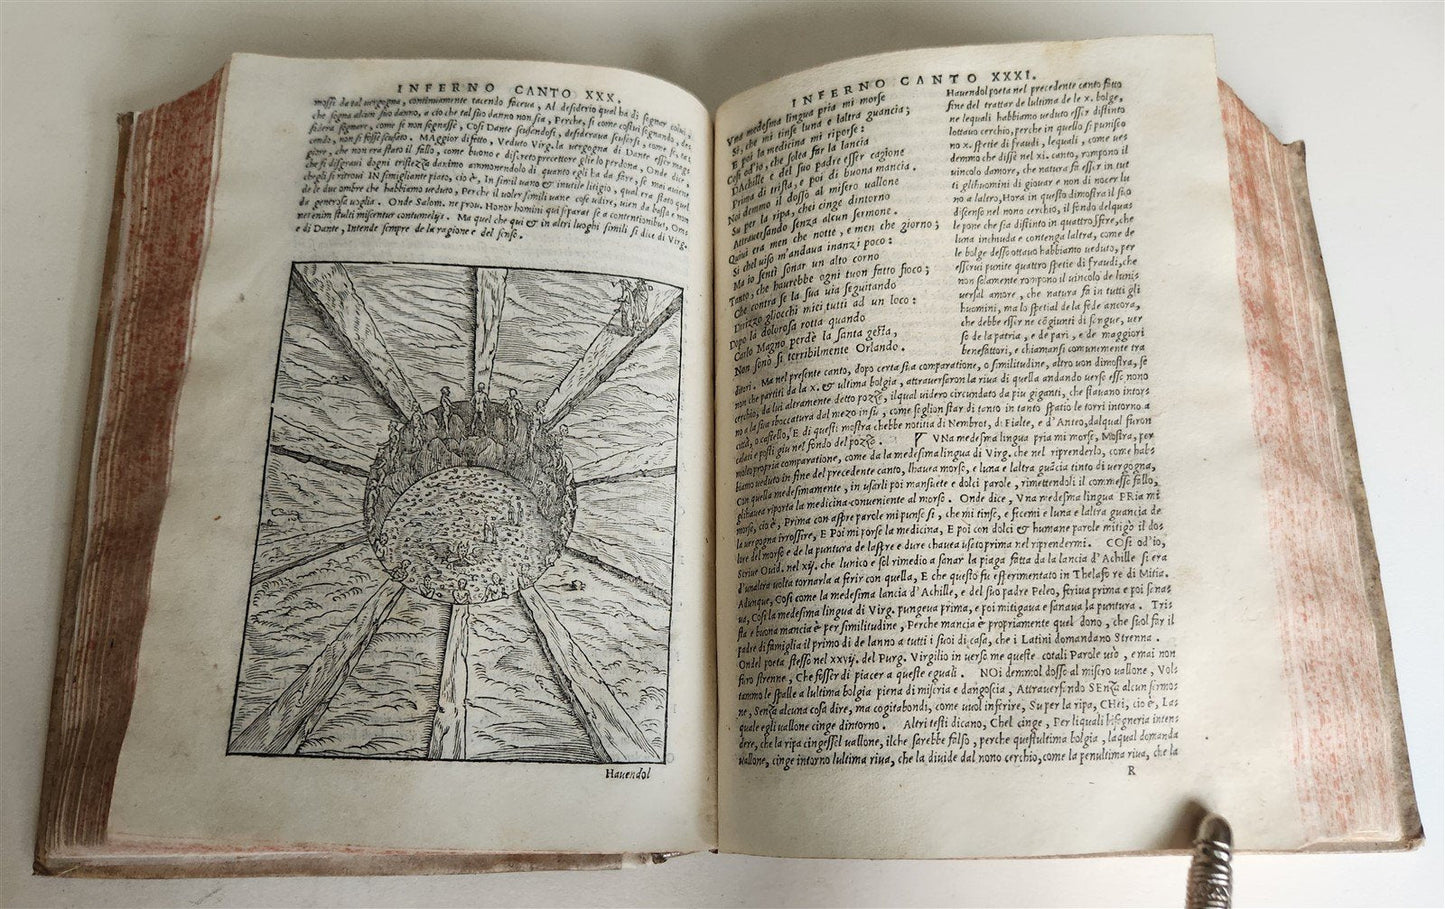 INFERNO CANTO XXX.
mossi da tal vergogna, continuamente tacendo faceua, Al desiderio qual ha di sognar colui,
che sogna alcun suo danno, a cio che tal suo danno non sia, Perche, si come costui sognando, de
sidera sognare, come se non sognasse, Cosi Dante scusandosi, desideraua scusarsi, come se, tal
cendo, non si fosse scusato. MAggior difetto, Veduto Virg. la vergogna di Dante esser mag
giore, che non era stato il fallo, come buono e discreto precettore glie lo perdona, Onde dice,
che si disgraui dogni tristezza daximo ammonendolo di quanto egli ha da fare, se mai auiene
chegli si ritroui IN simigliante piato, cio è, In simil uano & inutile litigio, qual era stato quel
de le due ombre che habbiamo ueduto, Perche il uoler simili uane cose udire, uien da bassa e non
da generosa uoglia. Onde Salom. ne prou. Honor homini qui separat se a contentionibus, Oms
nes enim stulti miscentur contumelijs. Ma quel che qui & in altri luoghi simili si dice di Virg.
e di Dante, Intende sempre de la ragione e del senso.
Hauendol
INFERNO CANTO XXXI.
Vna medesma lingua pria mi morse
Si, che mi tinse luna e laltra guancia;
E poi la medicina mi riporse:
Cosi od'io, che solea far la lancia
D'Achille e del suo padre esser cagione
Prima di trista, e poi di buona mancia.
Noi demmo il dosso al misero uallone
Su per la ripa, chei cinge dintorno
Attrauersando senza alcun sermone.
Quiui era men che notte, e men che giorno;
Si chel uiso m'andaua inanzi poco:
Ma io senti sonar un alto corno
Tanto, che haurebbe ogni tuon fatto fioco;
Che contra se la sua uia seguitando
Dirizzo gliocchi miei tutti ad un loco:
Dopo la dolorosa rotta quando
Carlo Magno perdè la santa gesta,
Non sono si terribilmente Orlando.
Hauendol poeta nel precedente canto fatto
fine del trattar de lultima de le x. bolge,
ne lequali habbiamo ueduto esser distinto
lottauo cerchio, perche in quello si punisco
no x. spetie di fraudi, lequali, come ues
demmo che disse nel xi. canto, rompono il
uincolo damore, che natura fa esser in tut
ti glihuomini di giouar e non di nocer lu
no a laltro, Hora in questo dimostra il suo
discenso nel nono cerchio, il fondo delquas
le pone che sia distinto in quattro sfere, che
luna inchiuda e contenga laltra, come de
le bolge dessottauo habbiamo ueduto, per
esserui punite quattro spetie di fraudi, che
non solamente rompono il uincolo de lunis
uersal amore, che natura fa in tutti gli
huomini, ma lo spetial de la fede ancora,
che debbe esser ne cōgiunti di sangue, uer
so de la patria, e de pari, e de maggiori
benefattori, e chiamansi comunemente tra
ditori. Ma nel presente canto, dopo certa sua comparatione, o similitudine, altro uon dimostra, se
non che partiti da la x. & ultima bolgia, attrauersaron la riua di quella andando uerso esso nono
cerchio, da lui altramente detto pozzo, ilqual uidero circundato da piu giganti, che stauano intors
no a la sua sboccatura dal mezo in su, come soglion star di tanto in tanto spatio le torri intorno a
città, o castello, E di questi mostra chebbe notitia di Nembrot, di Fialte, e d'Anteo, dalqual furon
calati e posti giu nel fondo del pozzo. VNa medesma lingua pria mi morse, Mostra, per
molto propria comparatione, come da la medesima lingua di Virg. che nel riprenderlo, come hab=
biamo ueduto in fine del precedente canto, lhauea morso, e luna e laltra guācia tinto di uergogna,
Con quella medesimamente, in usarli poi mansuete e dolci parole, rimettendoli il commesso fallo,
glihauea riporta la medicina conueniente al morso. Onde dice, Vna medesma lingua PRia mi
morse, cio è, Prima con aspre parole mi punse si, che mi tinse, e fecemi e luna e laltra guancia de
la uergogna irrossire, E Poi mi porse la medicina, E poi con dolci & humane parole mitigò il dos
lore del morso e de la puntura de laspre e dure chauea usato prima nel riprendermi. COsi od'io,
Scriue Ouid. nel xij. che lunico e sol rimedio a sanar la piaga fatta da la lancia d'Achille si era
d'unaltra uolta tornarla a ferir con quella, E che questo fu esperimentato in Thelafo re di Misia.
Adunque, Cosi come la medesima lancia d'Achille, e del suo padre Peleo, feriua prima e poi sanas
ua, Cosi la medesima lingua di Virg. pungeua prima, e poi mitigaua e sanaua la puntura. Tris
sta e buona mancia è per similitudine, Perche mancia è propriamente quel dono, che suol far il
padre di famiglia il primo di de lanno a tutti i suoi di casa, che i Latini domandano Strenna.
Ondel poeta stesso nel xxvij. del Purg. Virgilio in uerso me queste cotali Parole usò, e mai non
furo strenne, Che fosser di piacer a queste eguali. NOi demmol dosso al misero uallone, Vols
tammo le spalle a lultima bolgia piena di miseria e dangoscia, Attrauersando SEnza alcun sermos
ne, Senza alcuna cosa dire, ma cogitabondi, come uuol inferire, Su per la ripa, CHei, cio è, Las
quale egli uallone cinge dintorno. Altri testi dicano, Chel cinge, Per liquali bisogneria inten
dere, che la ripa cingessel uallone, ilche sarebbe falso, perche questultima bolgia, laqual domanda
uallone, cinge intorno lultima riua, che la diuide dal nono cerchio, come la penultima riua, che la
R